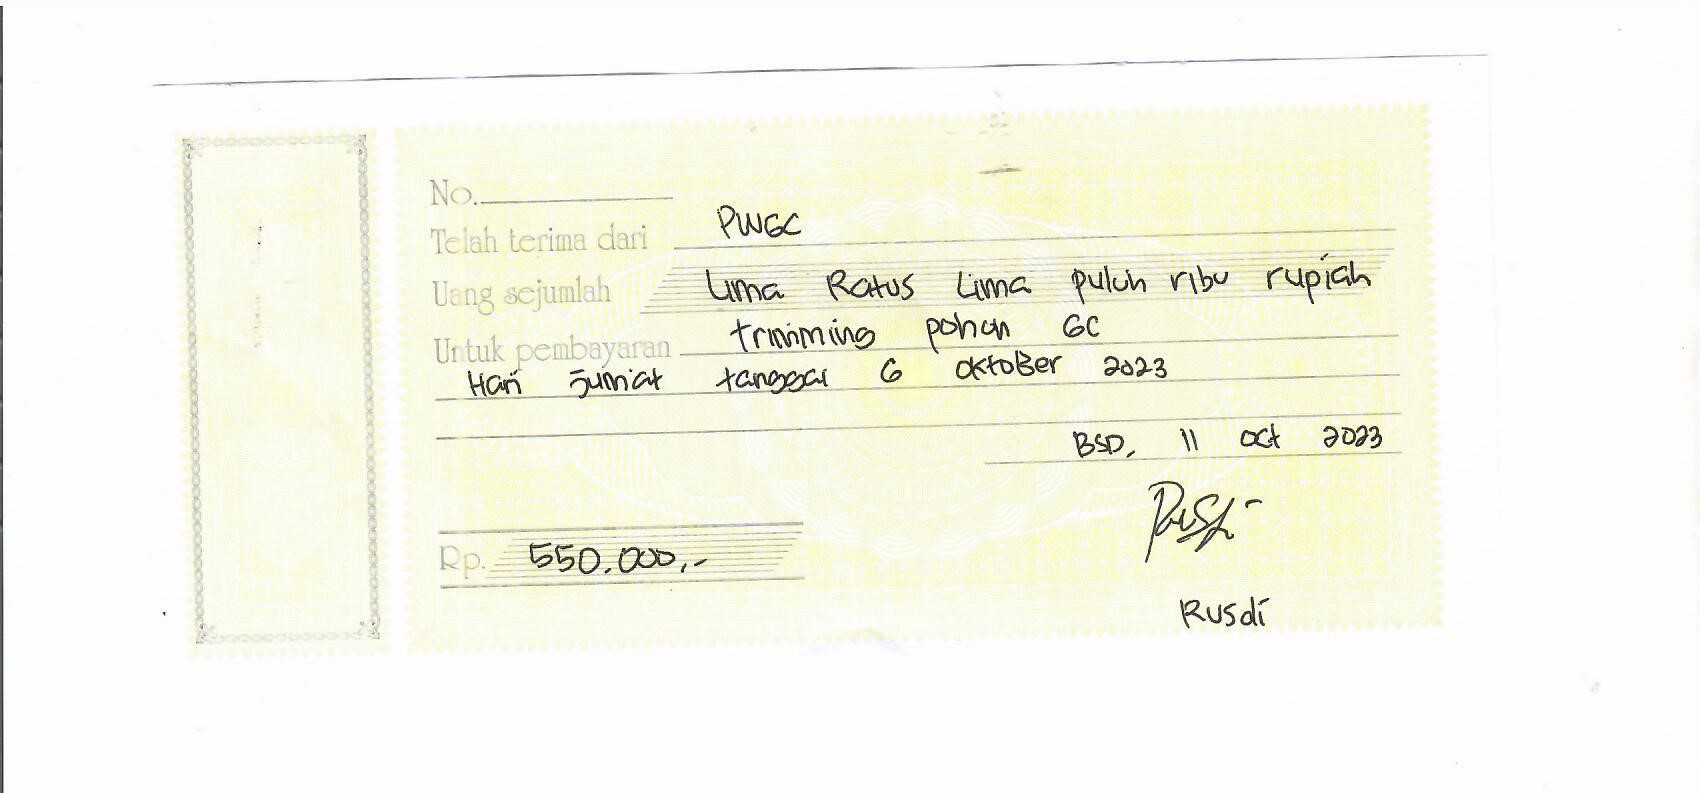 No.
Telah terima dari PWGC
Uang sejumlah Lima Ratus Lima puluh ribu rupiah
Untuk pembayaran trimming pohon GC
Hari Jumat tanggal 6 Oktober 2023
BSD, 11 Oct 2023
Rp. 550.000,-
Rusdi